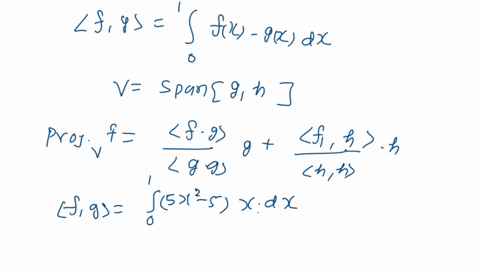 <f, g> = ∫₀¹ f(x) - g(x) dx
V = span[g, h]
Proj.ᵥ f = <f·g> / <g g> g + <f, h> / <h, h> · h
<f, g> = ∫₀¹ (5x² - 5) x. dx